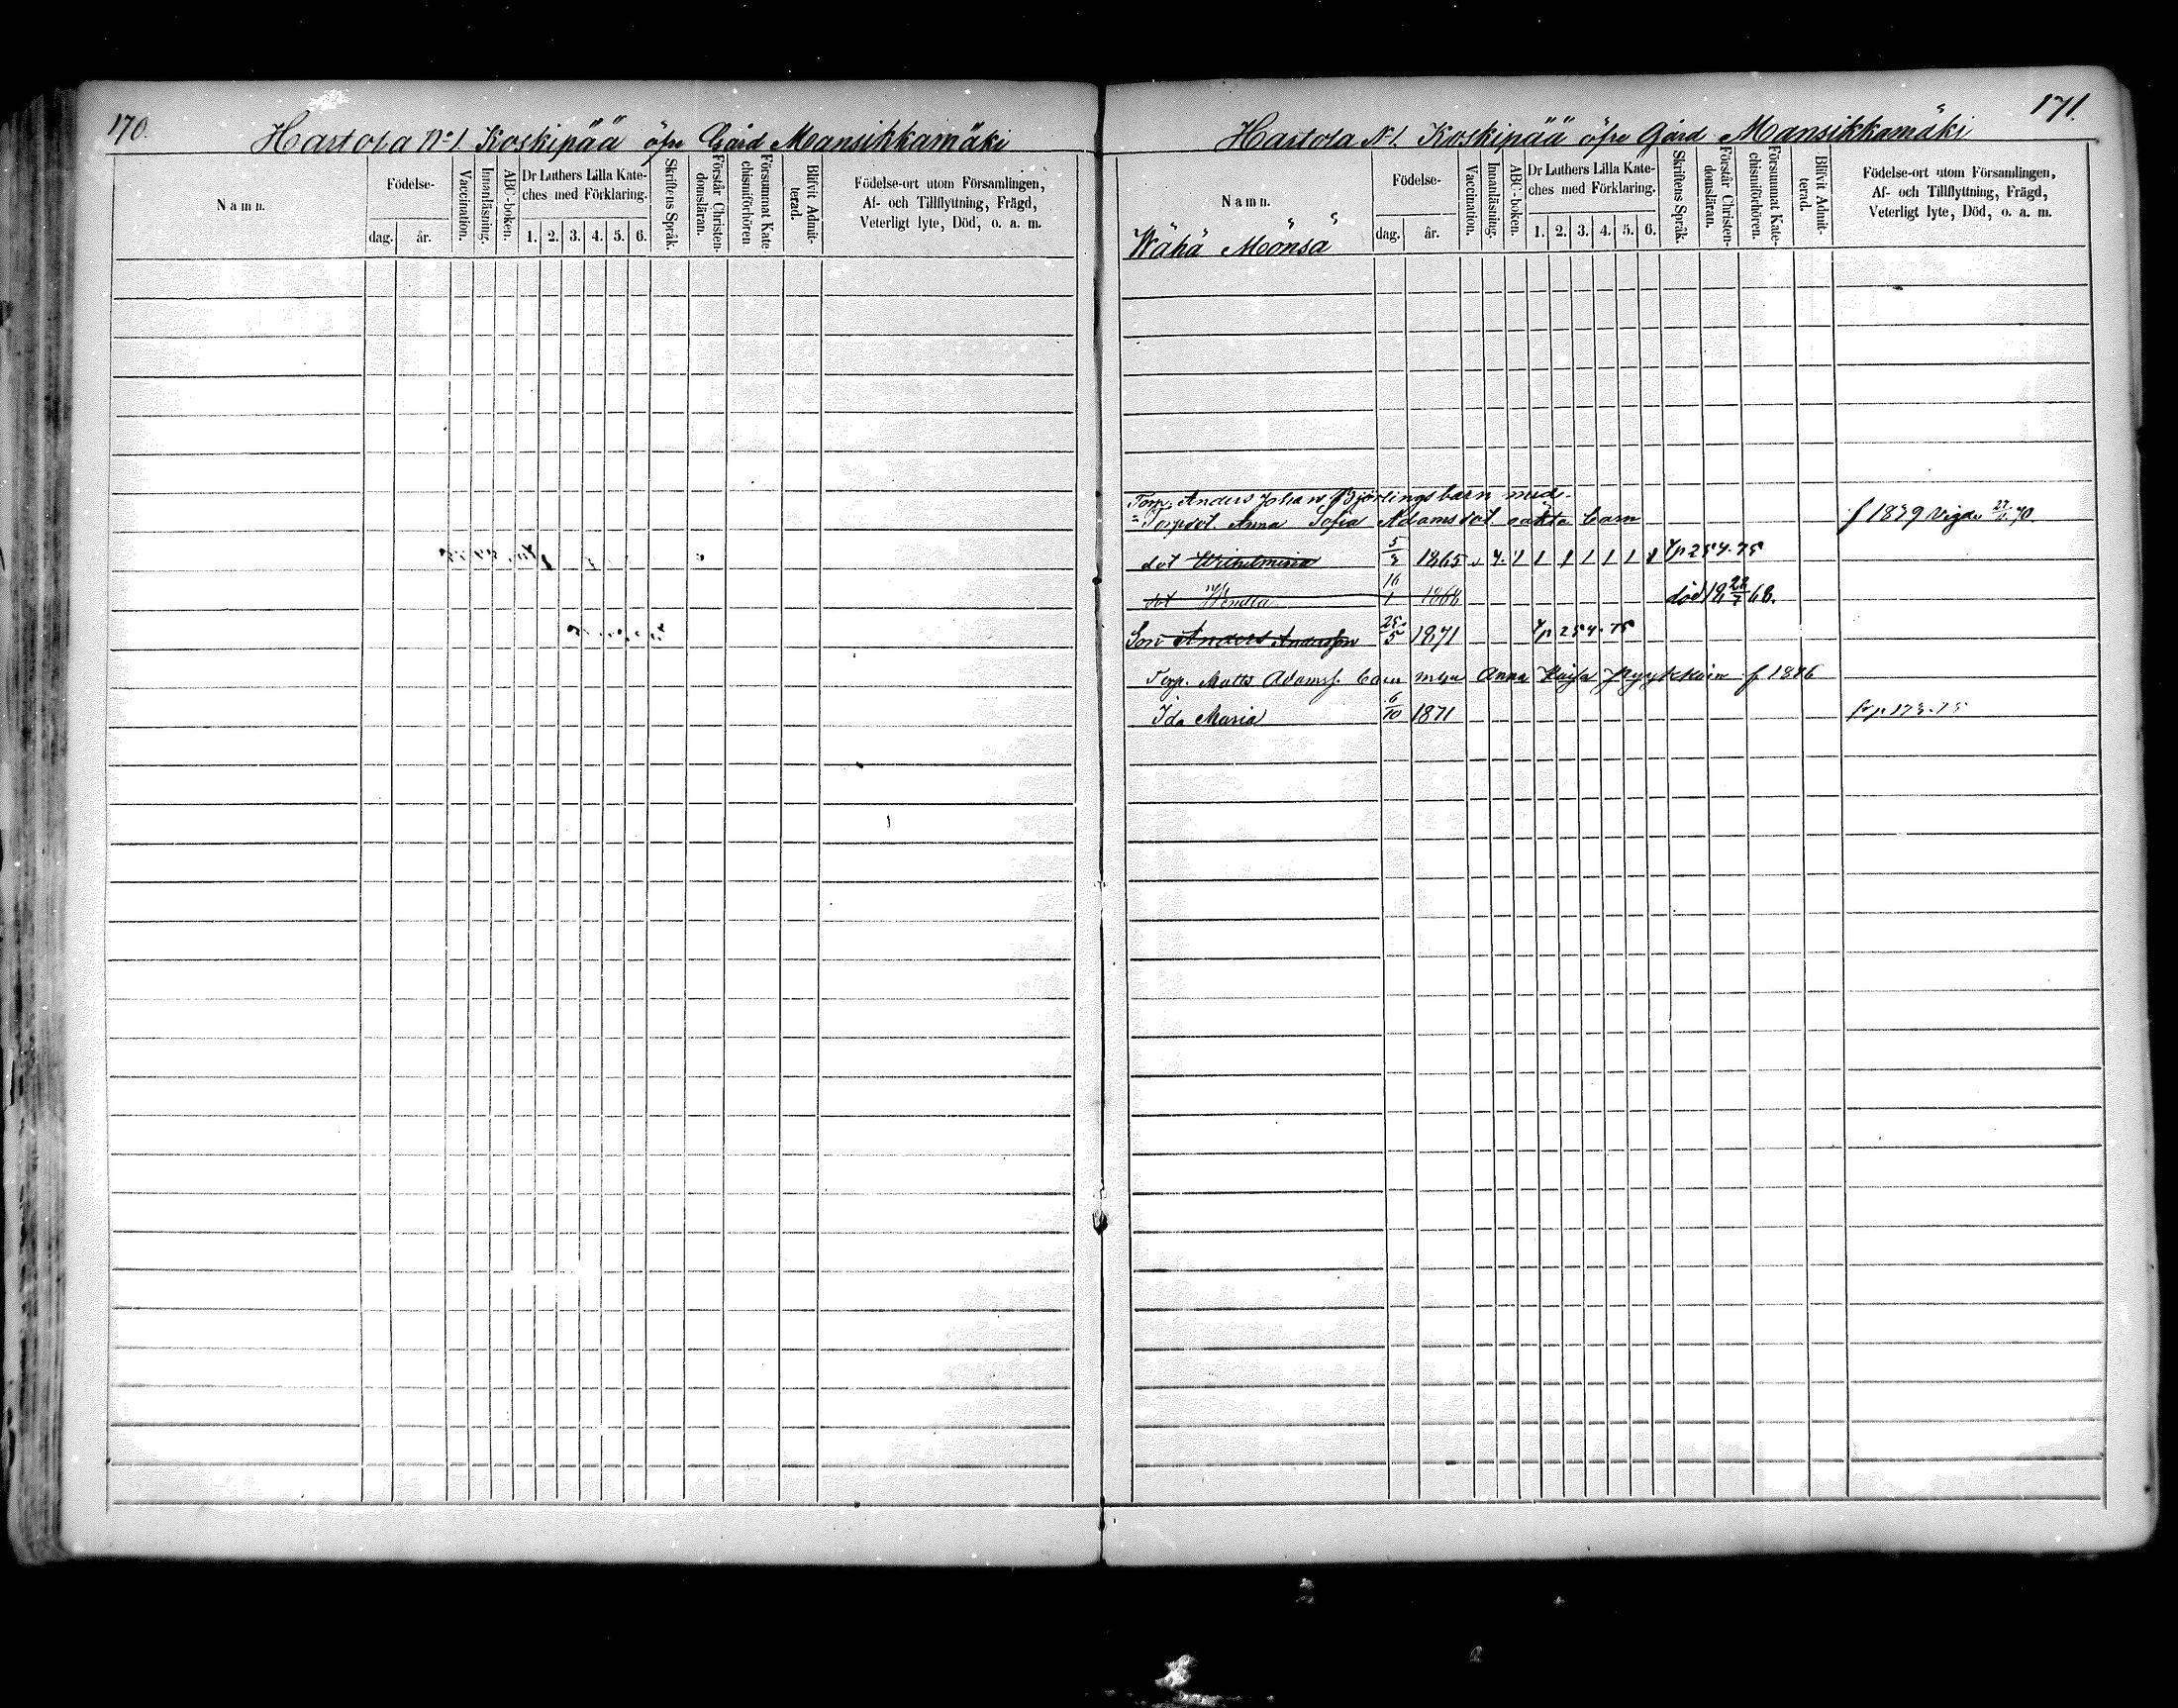 170.
Hartola No 1 Koskipää öfre Gård Mansikkamäki
Namn.
Födelse-
dag.
år.
Vaccination.
Innanläsning.
ABC-boken.
Dr Luthers Lilla Kate-
ches med Förklaring.
1. 2. 3. 4. 5. 6.
Skriftens Språk.
Förstår Christen-
domsläran.
Försummat Kate-
chismiförhören
Blifvit Admit-
terad.
Födelse-ort utom Församlingen,
Af- och Tillflyttning, Frägd,
Veterligt lyte, Död, o. a. m.
171.
Hartola N 1. Koskipää öfre Gård Mansikkamäki
Namn.
Wähä Mönsä
Födelse-
dag.
år.
Vaccination.
Innanläsning.
ABC-boken.
Dr Luthers Lilla Kate-
ches med Förklaring.
1. 2. 3. 4. 5. 6.
Skriftens Språk.
Förstår Christen-
domsläran.
Försummat Kate-
chismiförhören.
Blifvit Admit-
terad.
Födelse-ort utom Församlingen,
Af- och Tillflyttning, Frägd,
Veterligt lyte, Död, o. a. m.
Torp. Anders Johan Björlings barn med
Torpdot Anna Sofia Adamsdot oäkta barn f 1839 Vigde 70.
dot Wilhelmina 5/3 1865 1 1 1 1 1 1 1 p 254.75
dot Wendla 16/1 1868 död 18 22/7 68.
Son Anders Andersson 25/5 1871 p 254.75
Torp. Matts Adamss. barn med Anna Kaisa f 1846
Ida Maria 6/10 1871 p 173.75